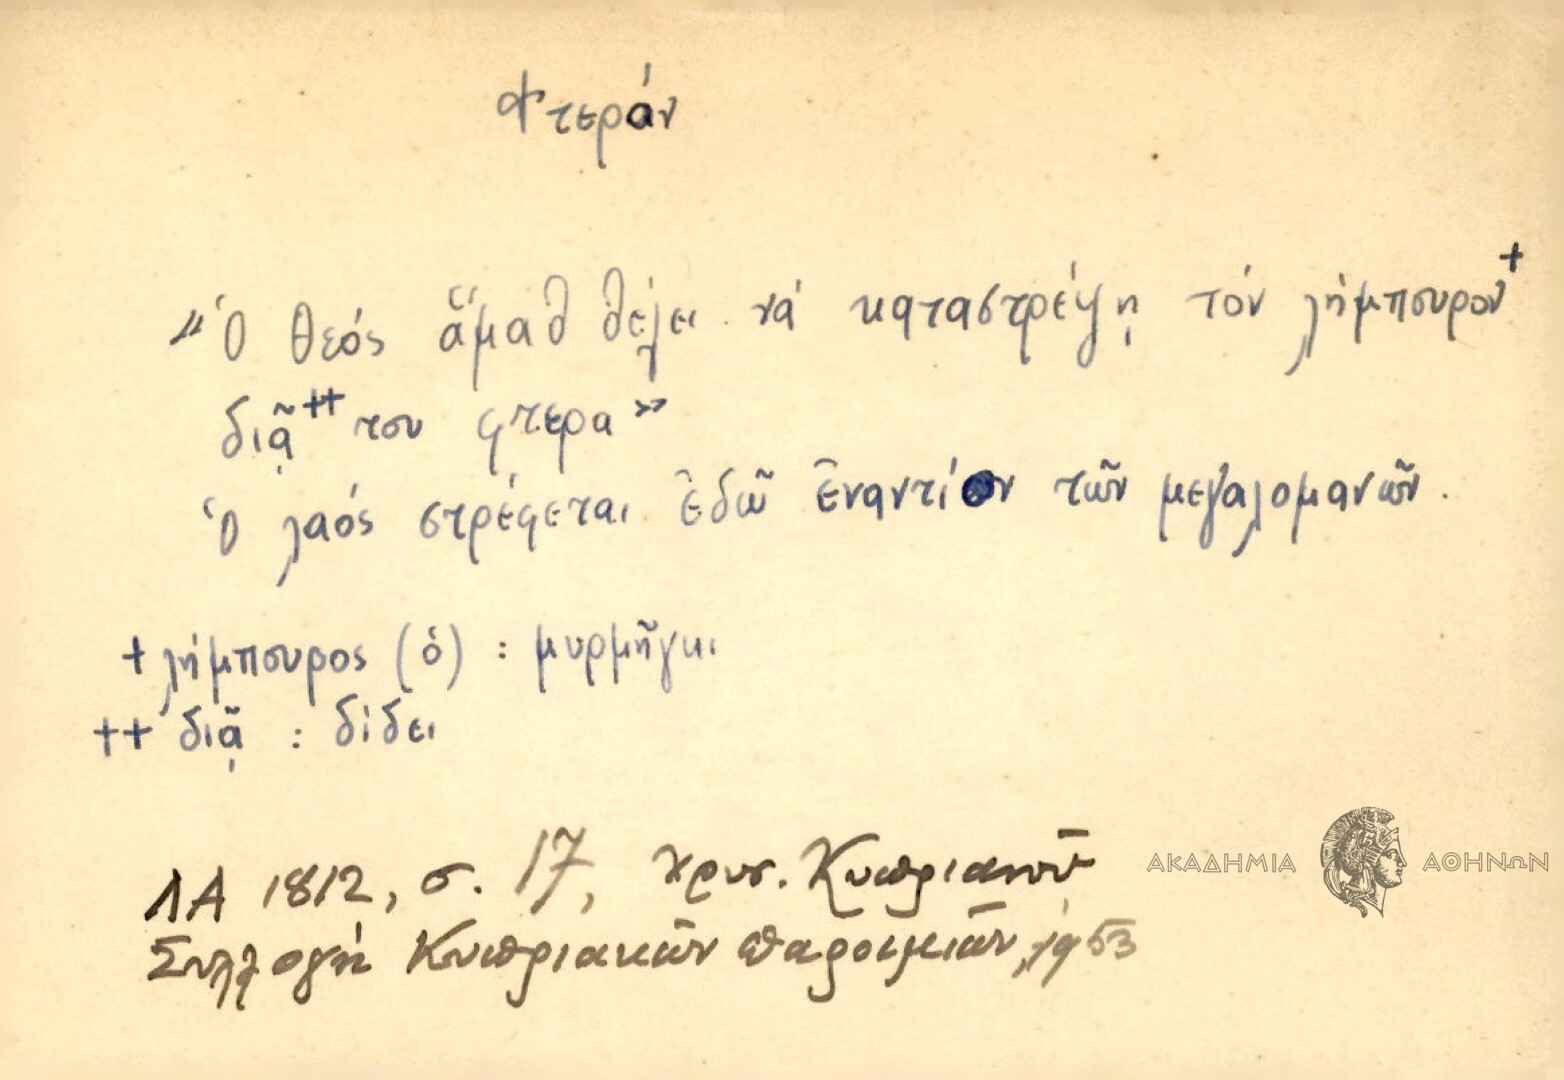 Φτεράν
"Ὁ θεός ἅμαθ θέλει νά καταστρέψῃ τόν λήμπουρον+
διᾷ++ του φτερα"
Ὁ λαός στρέφεται ἐδῶ ἐναντίον τῶν μεγαλομανῶν.
+ λήμπουρος (ὁ) : μυρμῆγκι
++ διᾷ : δίδει
ΛΑ 1812, σ. 17, Χρυσ. Κυπριανοῦ
Συλλογή Κυπριακῶν παροιμιῶν, 1953
ΑΚΑΔΗΜΙΑ ΑΘΗΝΩΝ